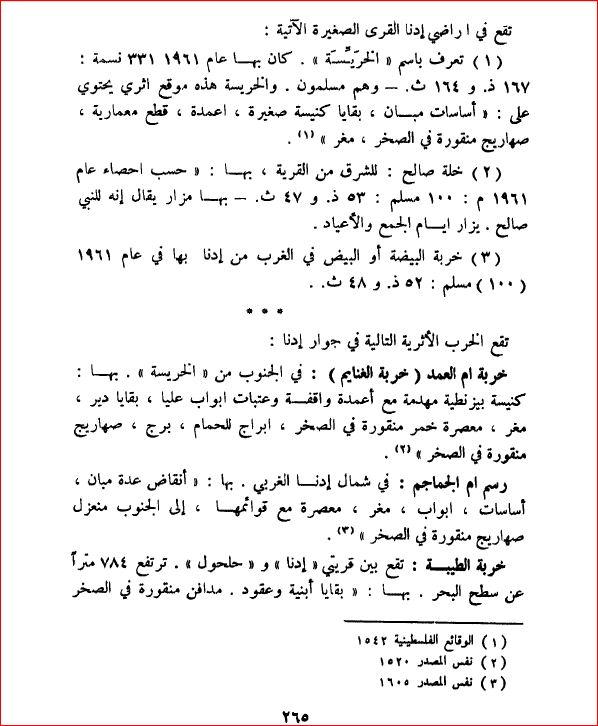 تقع في اراضي إدنا القرى الصغيرة الآتية :
( ١ ) تعرف باسم « الخَرَيِّسَة » . كان بها عام ١٩٦١ ٣٣١ نسمة :
١٦٧ ذ. و ١٦٤ ث. – وهم مسلمون . والخريسة هذه موقع اثري يحتوي
على : « أساسات مبان ، بقايا كنيسة صغيرة ، اعمدة ، قطع معمارية ،
صهاريج منقورة في الصخر ، مغر » (١) .
( ٢ ) خلة صالح : للشرق من القرية ، بها : « حسب احصاء عام
١٩٦١ م : ١٠٠ مسلم : ٥٣ ذ. و ٤٧ ث. – بها مزار يقال إنه للنبي
صالح . يزار ايام الجمع والأعياد .
( ٣ ) خربة البيضة أو البيض في الغرب من إدنا بها في عام ١٩٦١
( ١٠٠ ) مسلم : ٥٢ ذ. و ٤٨ ث. .
* * *
تقع الخرب الأثرية التالية في جوار إدنا :
خربة ام العمد ( خربة الغنايم ) : في الجنوب من « الخريسة » . بها :
كنيسة بيزنطية مهدمة مع أعمدة واقفة وعتبات ابواب عليا ، بقايا دير ،
مغر ، معصرة خمر منقورة في الصخر ، ابراج للحمام ، برج ، صهاريج
منقورة في الصخر » (٢) .
رسم ام الجماجم : في شمال إدنا الغربي . بها : « أنقاض عدة مبان ،
أساسات ، ابواب ، مغر ، معصرة مع قوائمها ، إلى الجنوب منعزل
صهاريج منقورة في الصخر » (٣) .
خربة الطيبة : تقع بين قريتي « إدنا » و « حلحول » . ترتفع ٧٨٤ متراً
عن سطح البحر . بها : « بقايا أبنية وعقود . مدافن منقورة في الصخر
( ١ ) الوقائع الفلسطينية ١٥٤٢
( ٢ ) نفس المصدر ١٥٢٠
( ٣ ) نفس المصدر ١٦٠٥
٢٦٥